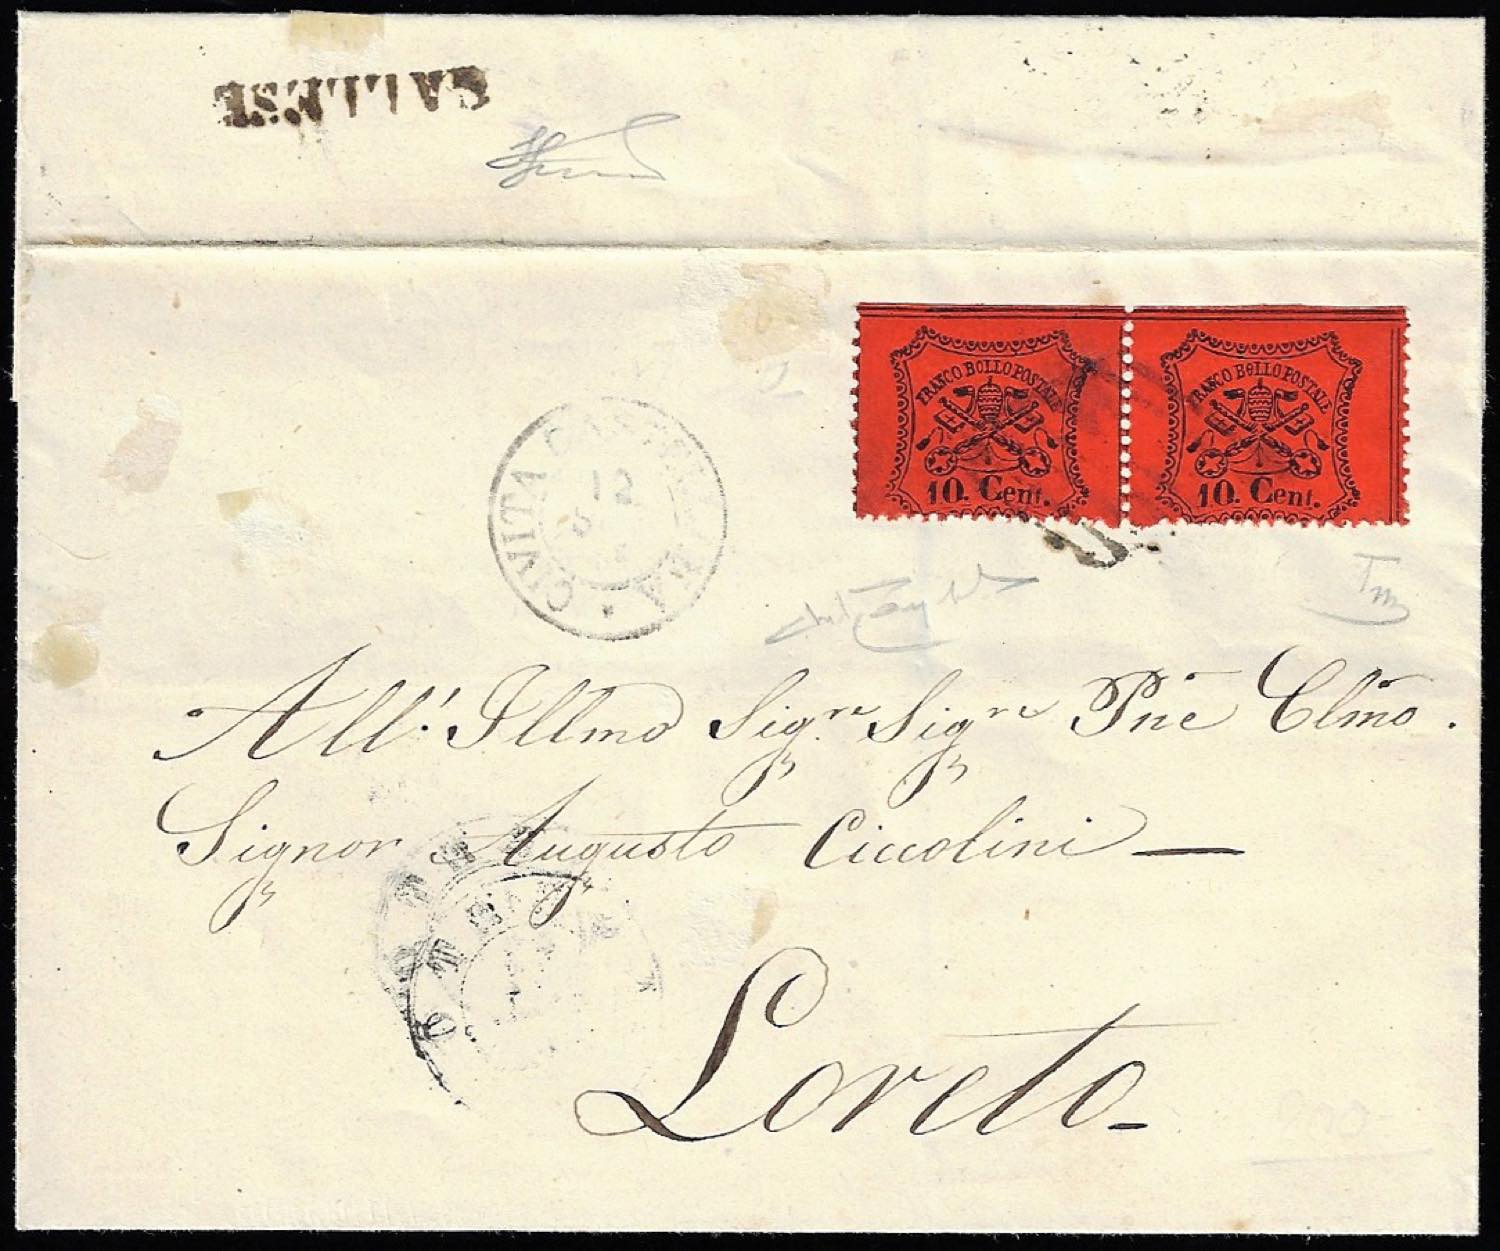 GALLESE
FRANCO BOLLO POSTALE
10. Cent.
FRANCO BOLLO POSTALE
10. Cent.
CIVITA CASTELLANA
12
All.' Illmo Sigre Sigre Pñe Clmo.
Signor Augusto Ciccolini —
Loreto